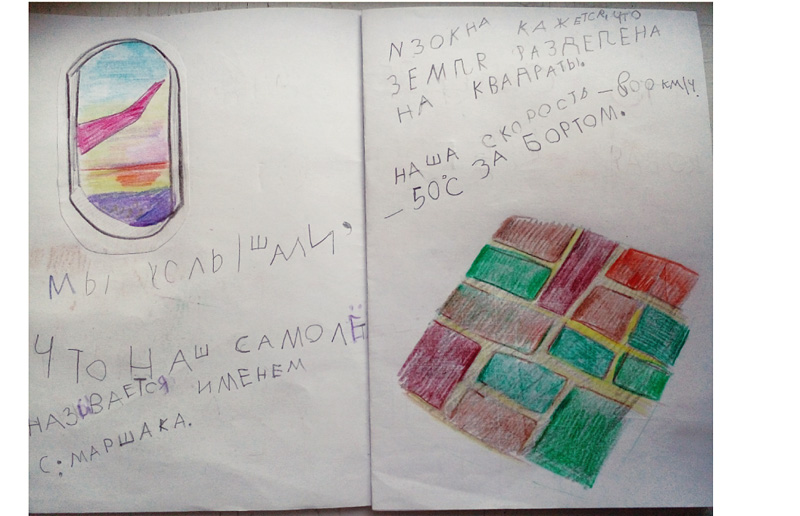 МЫ УСЛЫШАЛИ,
ЧТО НАШ САМОЛЁ
НАЗЫВАЕТСЯ ИМЕНЕМ
С. МАРШАКА.
ИЗ ОКНА КАЖЕТСЯ, ЧТО
ЗЕМЛЯ РАЗДЕЛЕНА
НА КВАДРАТЫ.
НАША СКОРОСТЬ – 800 КМ/Ч.
– 50°С ЗА БОРТОМ.